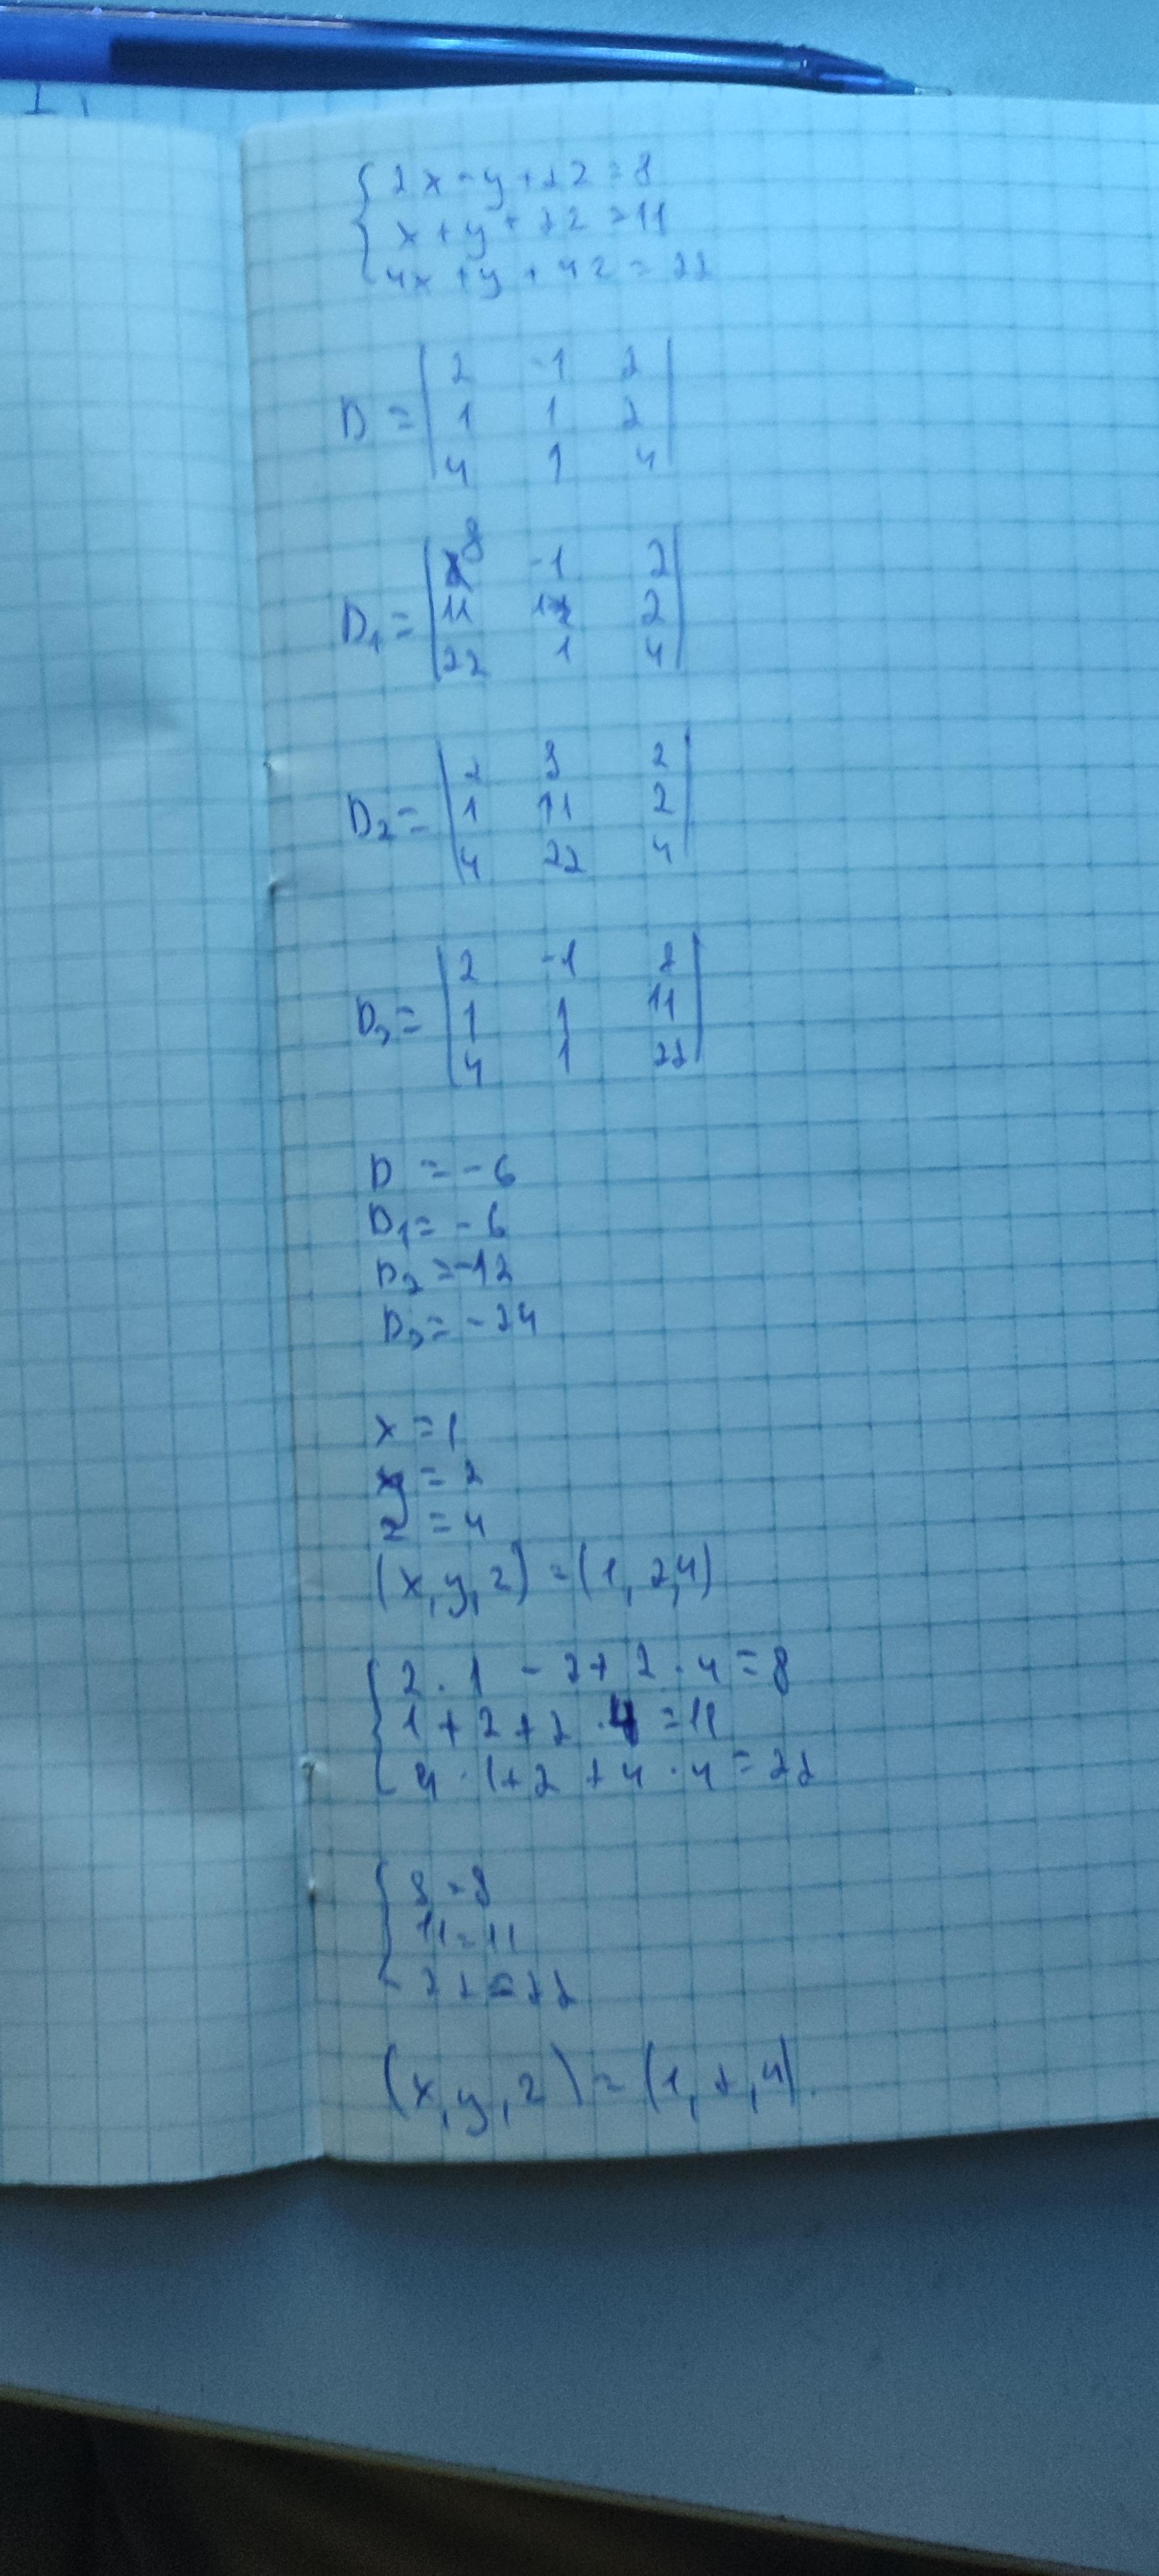 2x-y+2z=8
x+y+2z=11
4x+y+4z=22
D=|2 -1 2|
|1 1 2|
|4 1 4|
D₁=|8 -1 2|
|11 1 2|
|22 1 4|
D₂=|2 8 2|
|1 11 2|
|4 22 4|
D₃=|2 -1 8|
|1 1 11|
|4 1 22|
D=-6
D₁=-6
D₂=-12
D₃=-24
x=1
y=2
z=4
(x,y,z)=(1,2,4)
2·1-2+2·4=8
1+2+2·4=11
4·1+2+4·4=22
8=8
11=11
22=22
(x,y,z)=(1,2,4)